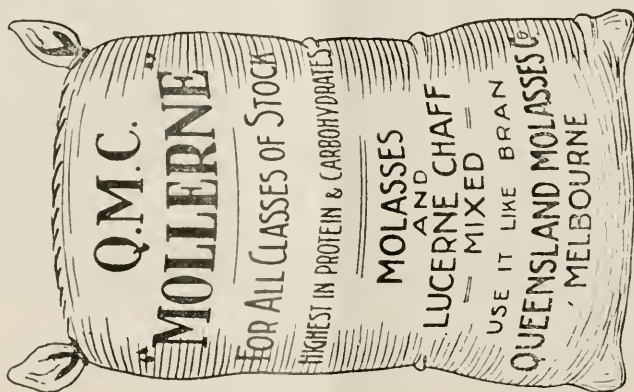 Q.M.C.
"MOLLERNE"
FOR ALL CLASSES OF STOCK
HIGHEST IN PROTEIN & CARBOHYDRATES
MOLASSES
AND
LUCERNE CHAFF
= MIXED =
USE IT LIKE BRAN
QUEENSLAND MOLASSES Co.
MELBOURNE